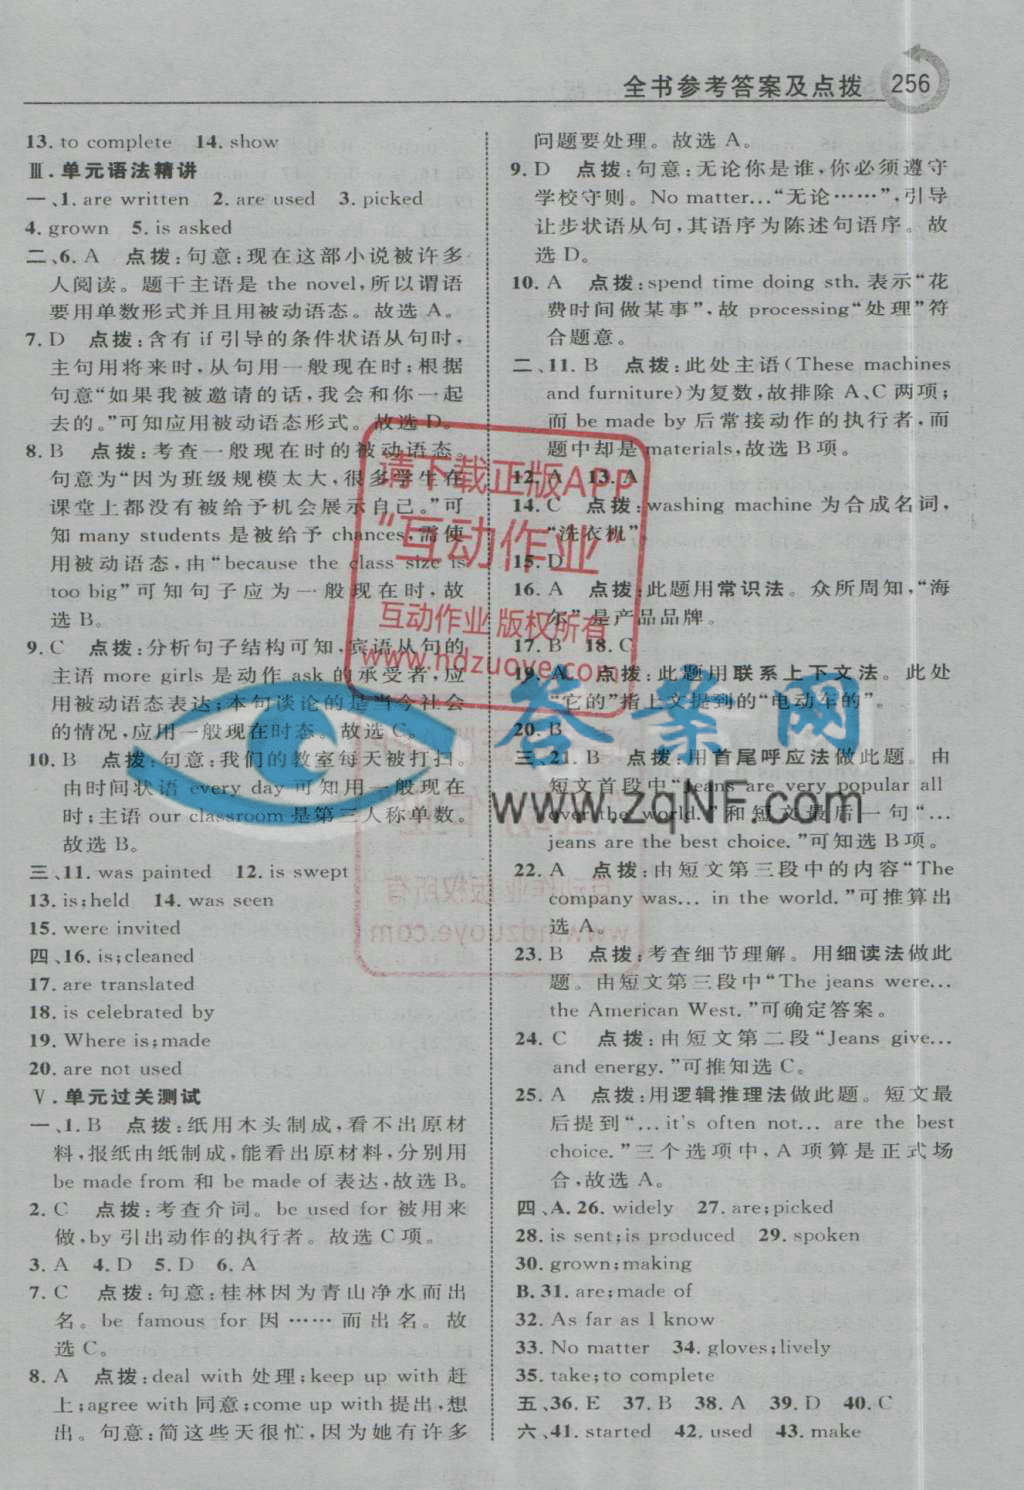 全书参考答案及点拨 256
13. to complete 14. show
Ⅲ.单元语法精讲
一、1. are written 2. are used 3. picked
4. grown 5. is asked
二、6. A 点拨:句意:现在这部小说被许多
人阅读。题干主语是 the novel,所以谓语
要用单数形式并且用被动语态。故选 A。
7. D 点拨:含有 if 引导的条件状语从句时,
主句用将来时,从句用一般现在时;根据
句意“如果我被邀请的话,我会和你一起
去的。”可知应用被动语态形式。故选 D。
8. B 点拨:考查一般现在时的被动语态。
句意为“因为班级规模太大,很多学生在
课堂上都没有被给予机会展示自己。”可
知 many students 是被给予 chances,需使
用被动语态,由“because the class size is
too big”可知句子应为一般现在时,故
选 B。
9. C 点拨:分析句子结构可知,宾语从句的
主语 more girls 是动作 ask 的承受者,应
用被动语态表达;本句谈论的是当今社会
的情况,应用一般现在时态。故选 C。
10. B 点拨:句意:我们的教室每天被打扫。
由时间状语 every day 可知用一般现在
时;主语 our classroom 是第三人称单数。
故选 B。
三、11. was painted 12. is swept
13. is;held 14. was seen
15. were invited
四、16. is;cleaned
17. are translated
18. is celebrated by
19. Where is;made
20. are not used
Ⅴ.单元过关测试
一、1. B 点拨:纸用木头制成,看不出原材
料,报纸由纸制成,能看出原材料,分别用
be made from 和 be made of 表达,故选 B。
2. C 点拨:考查介词。be used for 被用来
做,by 引出动作的执行者。故选 C 项。
3. A 4. D 5. D 6. A
7. C 点拨:句意:桂林因为青山净水而出
名。be famous for 因……而出名。故
选 C。
8. A 点拨:deal with 处理;keep up with 赶
上;agree with 同意;come up with 提出,想
出。句意:简这些天很忙,因为她有许多
问题要处理。故选 A。
9. D 点拨:句意:无论你是谁,你必须遵守
学校守则。No matter…“无论……”,引导
让步状语从句,其语序为陈述句语序。故
选 D。
10. A 点拨:spend time doing sth. 表示“花
费时间做某事”,故 processing“处理”符
合题意。
二、11. B 点拨:此处主语(These machines
and furniture)为复数,故排除 A、C 两项;
而 be made by 后常接动作的执行者,而
题中却是 materials,故选 B 项。
12. A 13. A
14. C 点拨:washing machine 为合成名词,
“洗衣机”
15. D
16. A 点拨:此题用常识法。众所周知,“海
尔”是产品品牌。
17. B 18. C
19. A 点拨:此题用联系上下文法。此处
“它的”指上文提到的“电动车的”。
20. B
三、21. B 点拨:用首尾呼应法做此题。由
短文首段中“Jeans are very popular all
over the world.”和短文最后一句“…
jeans are the best choice.”可知选 B 项。
22. A 点拨:由短文第三段中的内容“The
company was… in the world.”可推算出
选 A。
23. B 点拨:考查细节理解。用细读法做此
题。由短文第三段中“The jeans were…
the American West.”可确定答案。
24. C 点拨:由短文第二段“Jeans give…
and energy.”可推知选 C。
25. A 点拨:用逻辑推理法做此题。短文最
后提到“…it's often not… are the best
choice.”三个选项中,A 项算是正式场
合,故选 A。
四、A. 26. widely 27. are;picked
28. is sent;is produced 29. spoken
30. grown;making
B. 31. are;made of
32. As far as I know
33. No matter 34. gloves;lively
35. take;to complete
五、36. E 37. B 38. A 39. D 40. C
六、41. started 42. used 43. make
请下载正版APP
“互动作业”
互动作业 版权所有
www.hdzuoye.com
答案网
www.zqNF.com